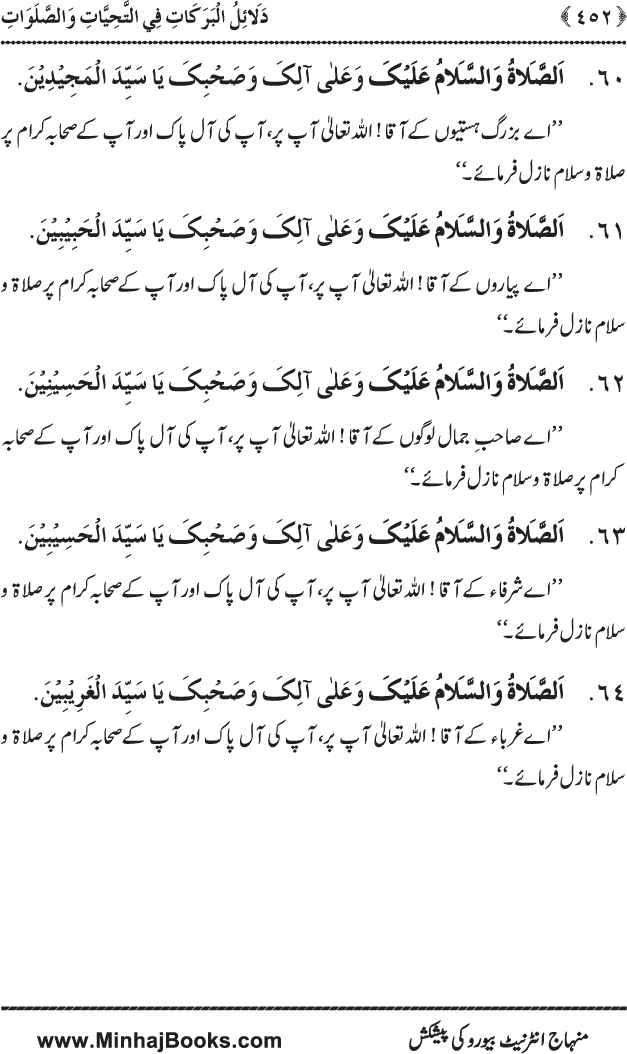 ﴿٤٥٢﴾ دَلَائِلُ الْبَرَكَاتِ فِي التَّحِيَّاتِ وَالصَّلَوَاتِ
٦٠. اَلصَّلَاةُ وَالسَّلَامُ عَلَيْکَ وَعَلٰی آلِکَ وَصَحْبِکَ يَا سَيِّدَ الْمَجِيْدِيْنَ.
’’اے بزرگ ہستیوں کے آقا! اللہ تعالیٰ آپ پر، آپ کی آل پاک اور آپ کے صحابہ کرام پر
صلاۃ و سلام نازل فرمائے۔‘‘
٦١. اَلصَّلَاةُ وَالسَّلَامُ عَلَيْکَ وَعَلٰی آلِکَ وَصَحْبِکَ يَا سَيِّدَ الْحَبِيْبِيْنَ.
’’اے پیاروں کے آقا! اللہ تعالیٰ آپ پر، آپ کی آل پاک اور آپ کے صحابہ کرام پر صلاۃ و
سلام نازل فرمائے۔‘‘
٦٢. اَلصَّلَاةُ وَالسَّلَامُ عَلَيْکَ وَعَلٰی آلِکَ وَصَحْبِکَ يَا سَيِّدَ الْحَسِيْنِيْنَ.
’’اے صاحبِ جمال لوگوں کے آقا! اللہ تعالیٰ آپ پر، آپ کی آل پاک اور آپ کے صحابہ
کرام پر صلاۃ و سلام نازل فرمائے۔‘‘
٦٣. اَلصَّلَاةُ وَالسَّلَامُ عَلَيْکَ وَعَلٰی آلِکَ وَصَحْبِکَ يَا سَيِّدَ الْحَسِيْبِيْنَ.
’’اے شرفاء کے آقا! اللہ تعالیٰ آپ پر، آپ کی آل پاک اور آپ کے صحابہ کرام پر صلاۃ و
سلام نازل فرمائے۔‘‘
٦٤. اَلصَّلَاةُ وَالسَّلَامُ عَلَيْکَ وَعَلٰی آلِکَ وَصَحْبِکَ يَا سَيِّدَ الْغَرِيْبِيْنَ.
’’اے غرباء کے آقا! اللہ تعالیٰ آپ پر، آپ کی آل پاک اور آپ کے صحابہ کرام پر صلاۃ و
سلام نازل فرمائے۔‘‘
منہاج انٹرنیٹ بیورو کی پیشکش www.MinhajBooks.com